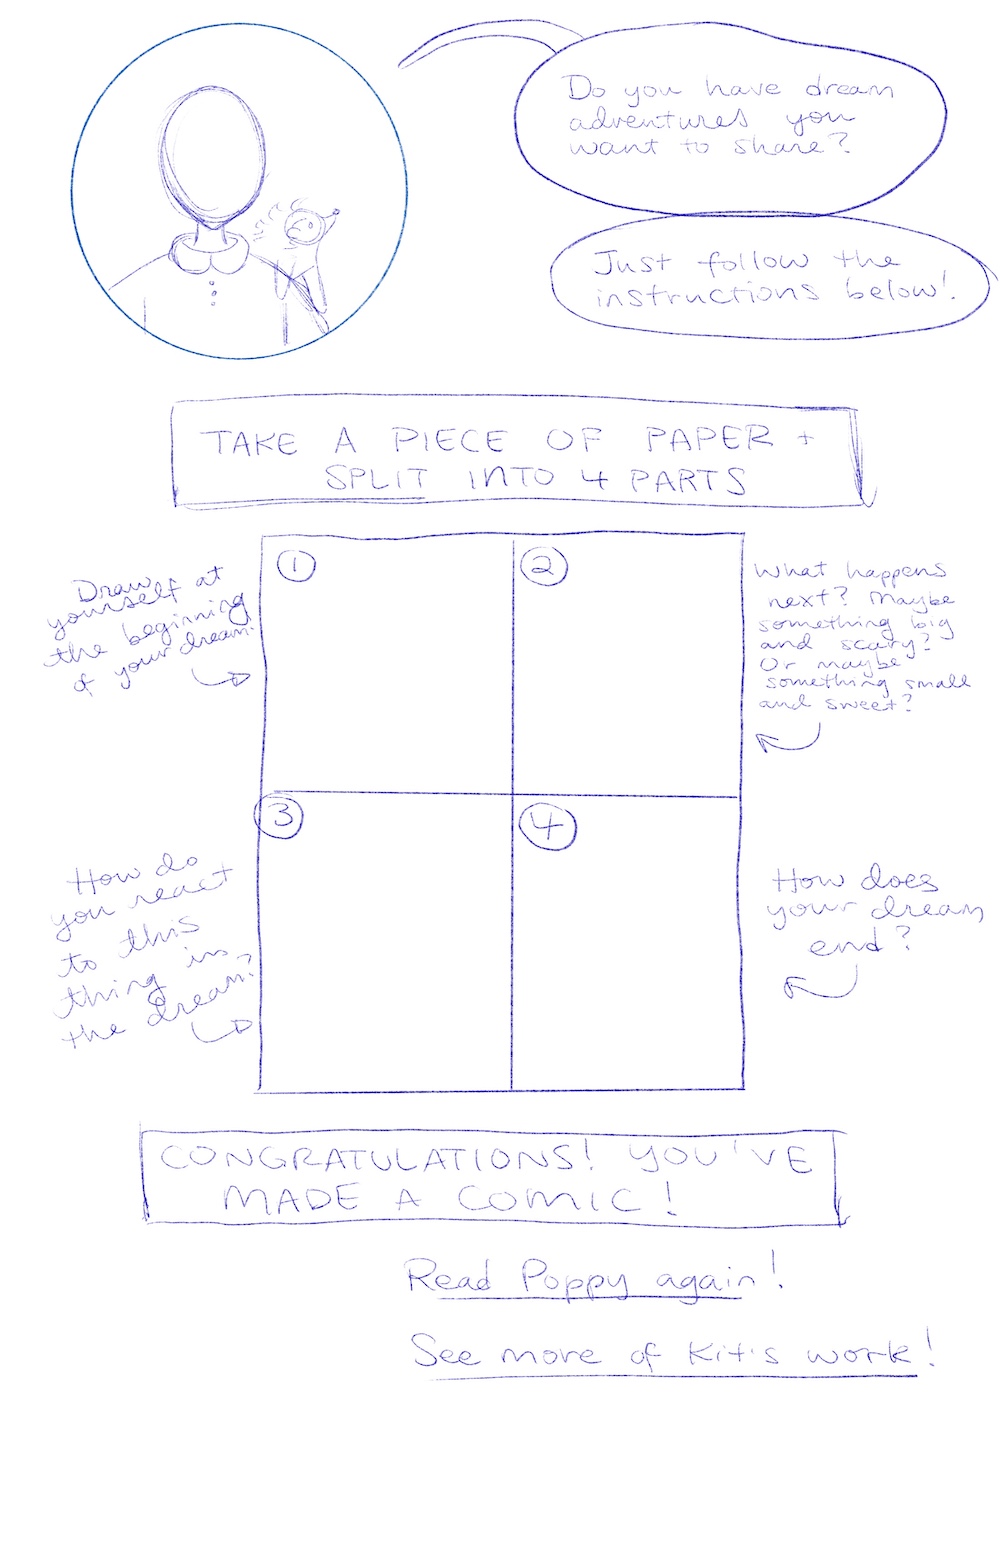 Do you have dream
adventures you
want to share?
Just follow the
instructions below!
TAKE A PIECE OF PAPER +
SPLIT INTO 4 PARTS
1
Draw
yourself at
the beginning
of your dream!
2
What happens
next? Maybe
something big
and scary?
Or maybe
something small
and sweet?
3
How do
you react
to this
thing in
the dream?
4
How does
your dream
end?
CONGRATULATIONS! YOU'VE
MADE A COMIC!
Read Poppy again!
See more of Kit's work!